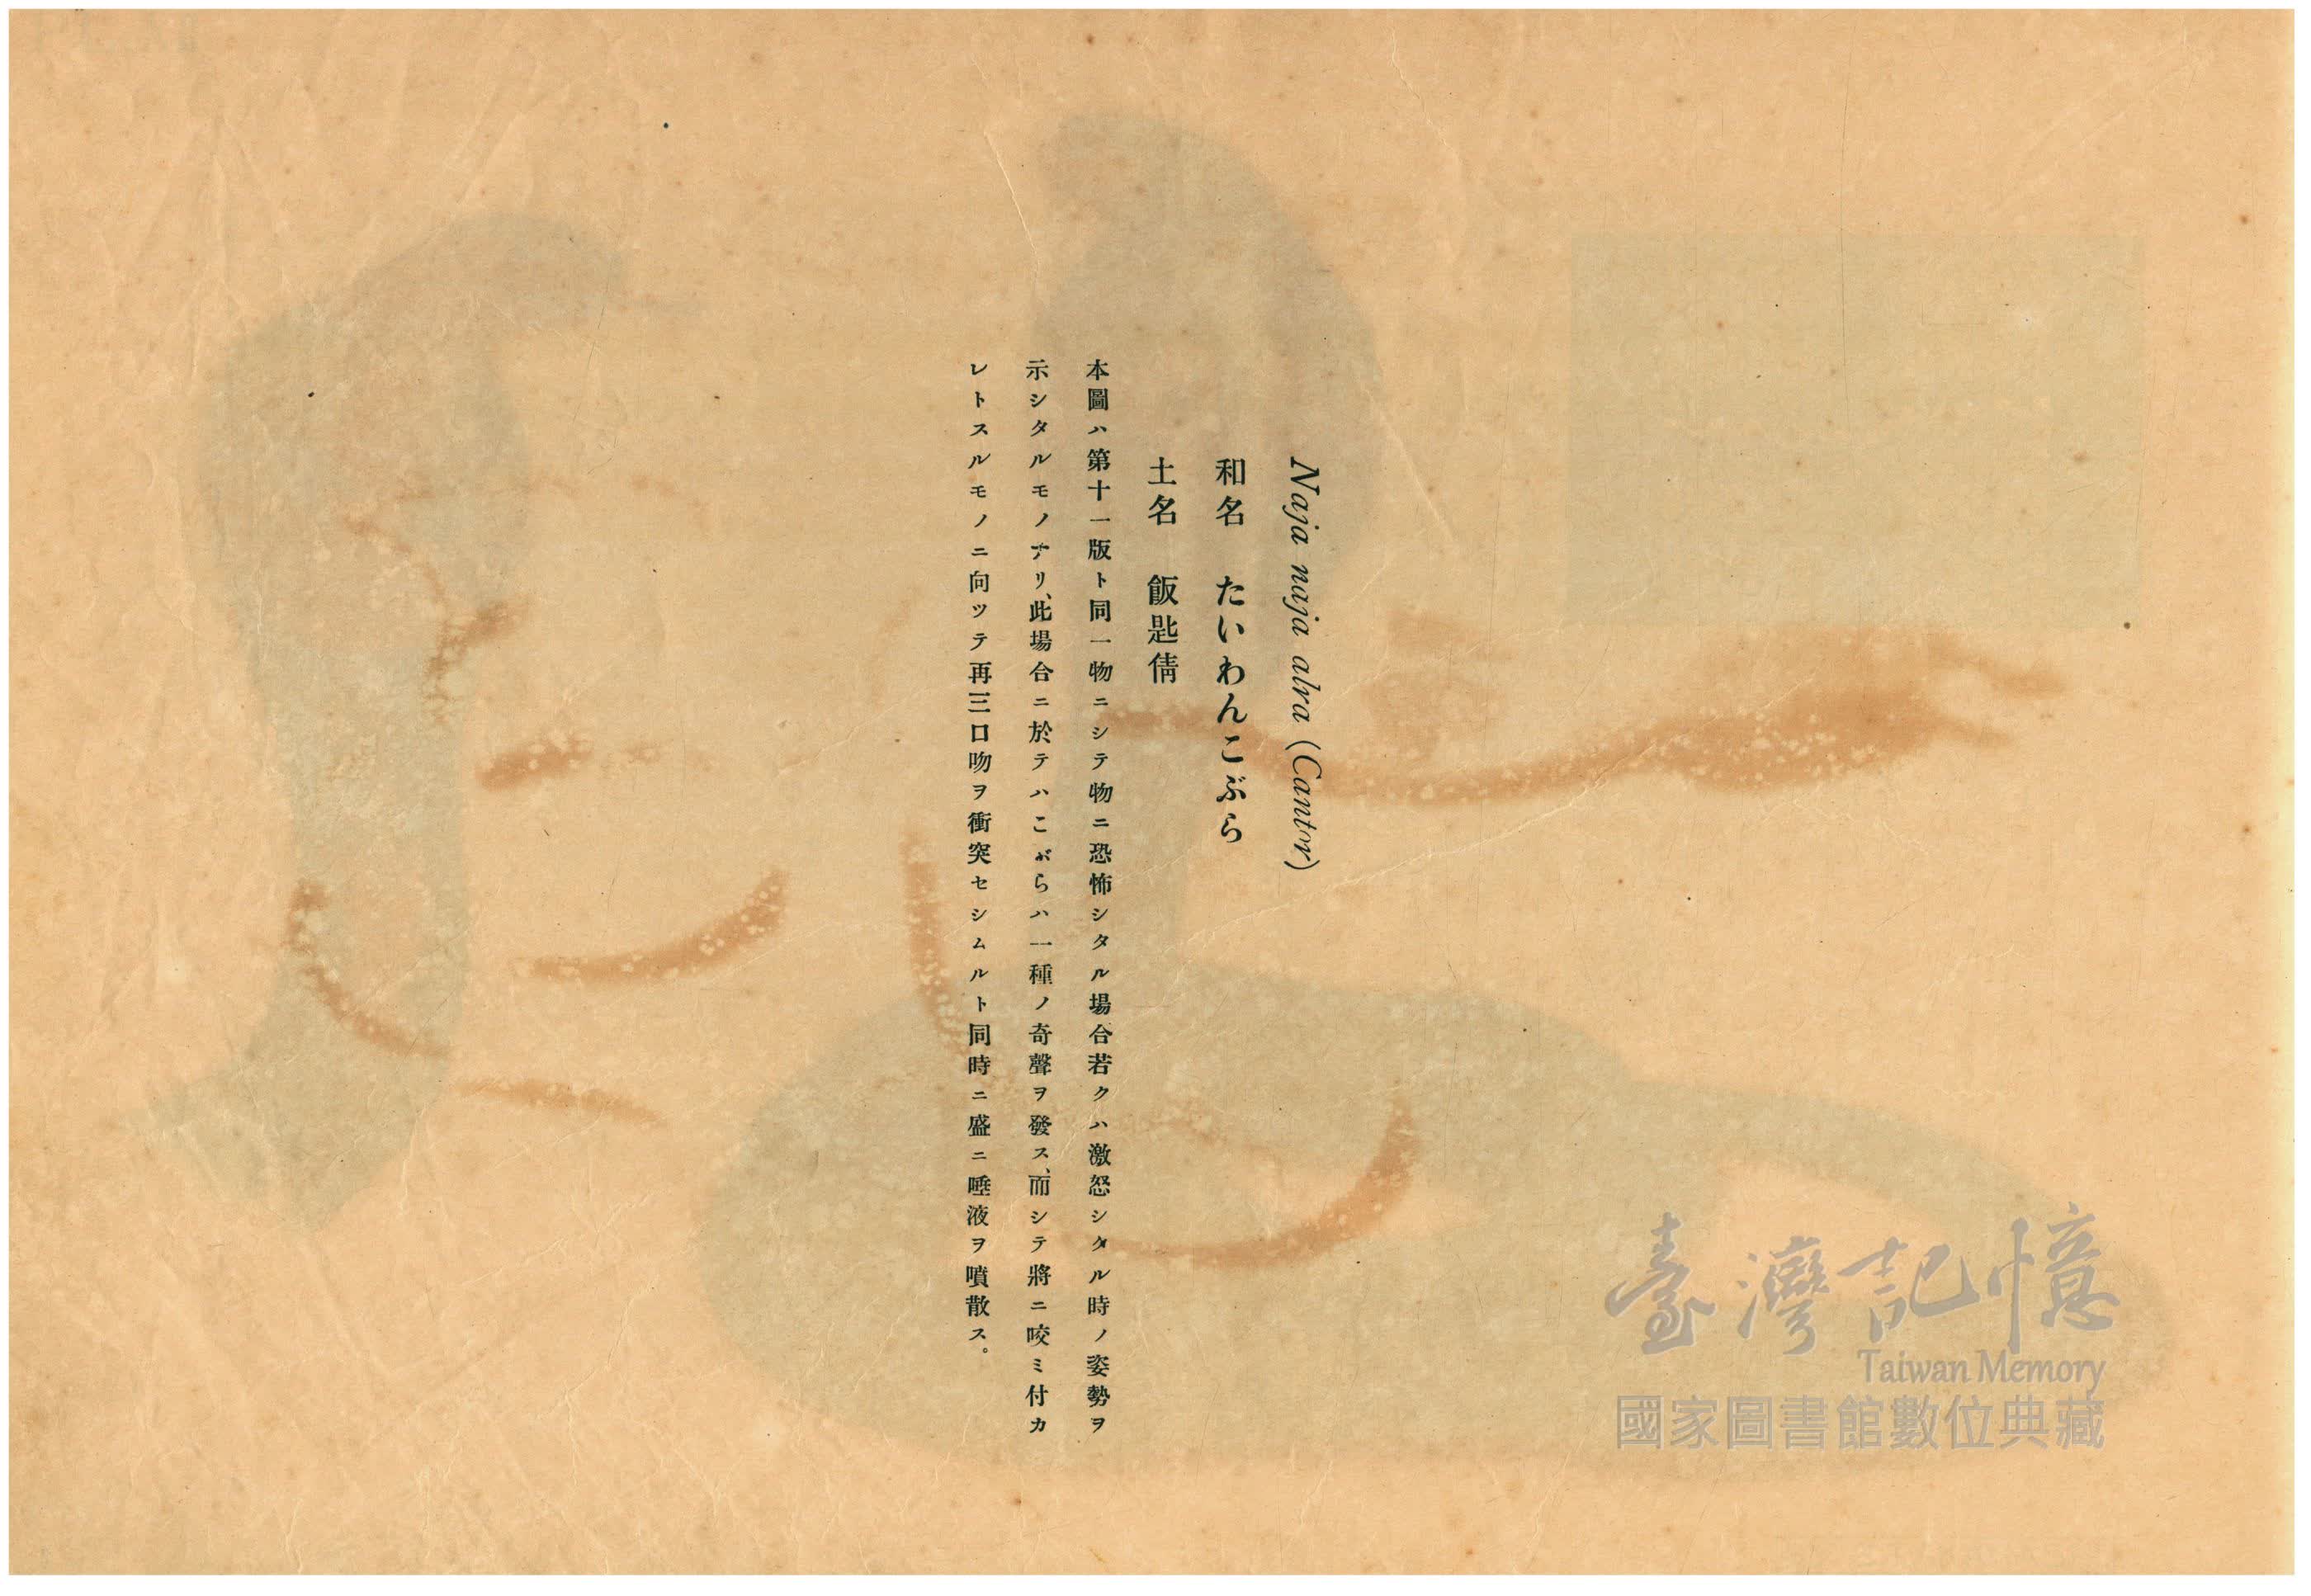 Naja naja alra (Cantor)
和名　たいわんこぶら
土名　飯匙倩
本圖ハ第十一版ト同一物ニシテ物ニ恐怖シタル場合若クハ激怒シタル時ノ姿勢ヲ
示シタルモノナリ、此場合ニ於テハこぶらハ一種ノ奇聲ヲ發ス、而シテ將ニ咬ミ付カ
レトスルモノニ向ツテ再三口吻ヲ衝突セシムルト同時ニ盛ニ唾液ヲ噴散ス。
臺灣記憶
Taiwan Memory
國家圖書館數位典藏